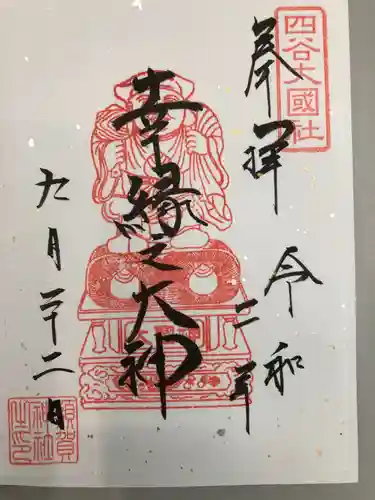 四谷大國社
奉拝
令和二年
幸縁之大神
九月二十二日
須賀
神社
之印